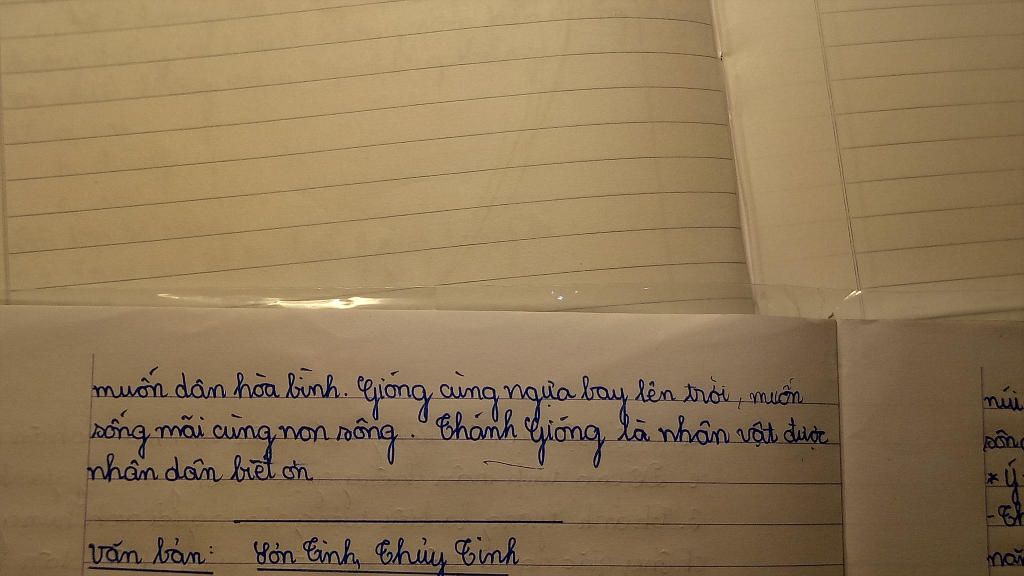 muốn dân hòa bình. Gióng cùng ngựa bay lên trời, muốn
sống mãi cùng non sông. Thánh Gióng là nhân vật được
nhân dân biết ơn
Văn bản: Sơn Tinh, Thủy Tinh
núi
sông
* Ý
- Th
năn